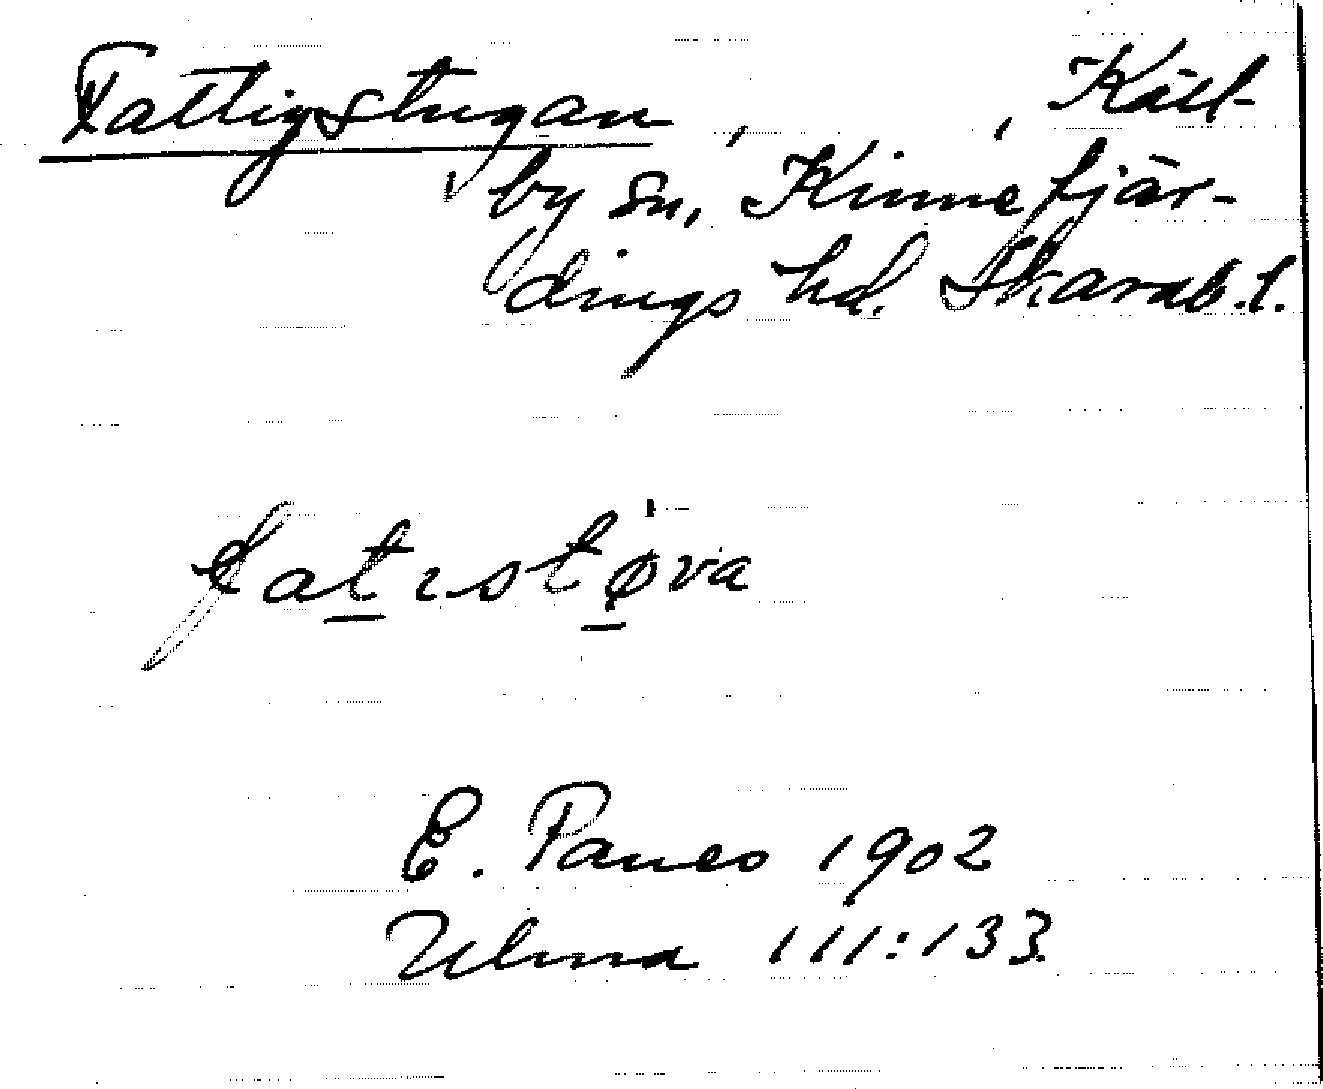 Fattigstugan, , Käll-
by sn, Kinnefjär-
dings hd. Skarab.l.
fatıstøva
E. Paneo 1902
Ulma 111:133.